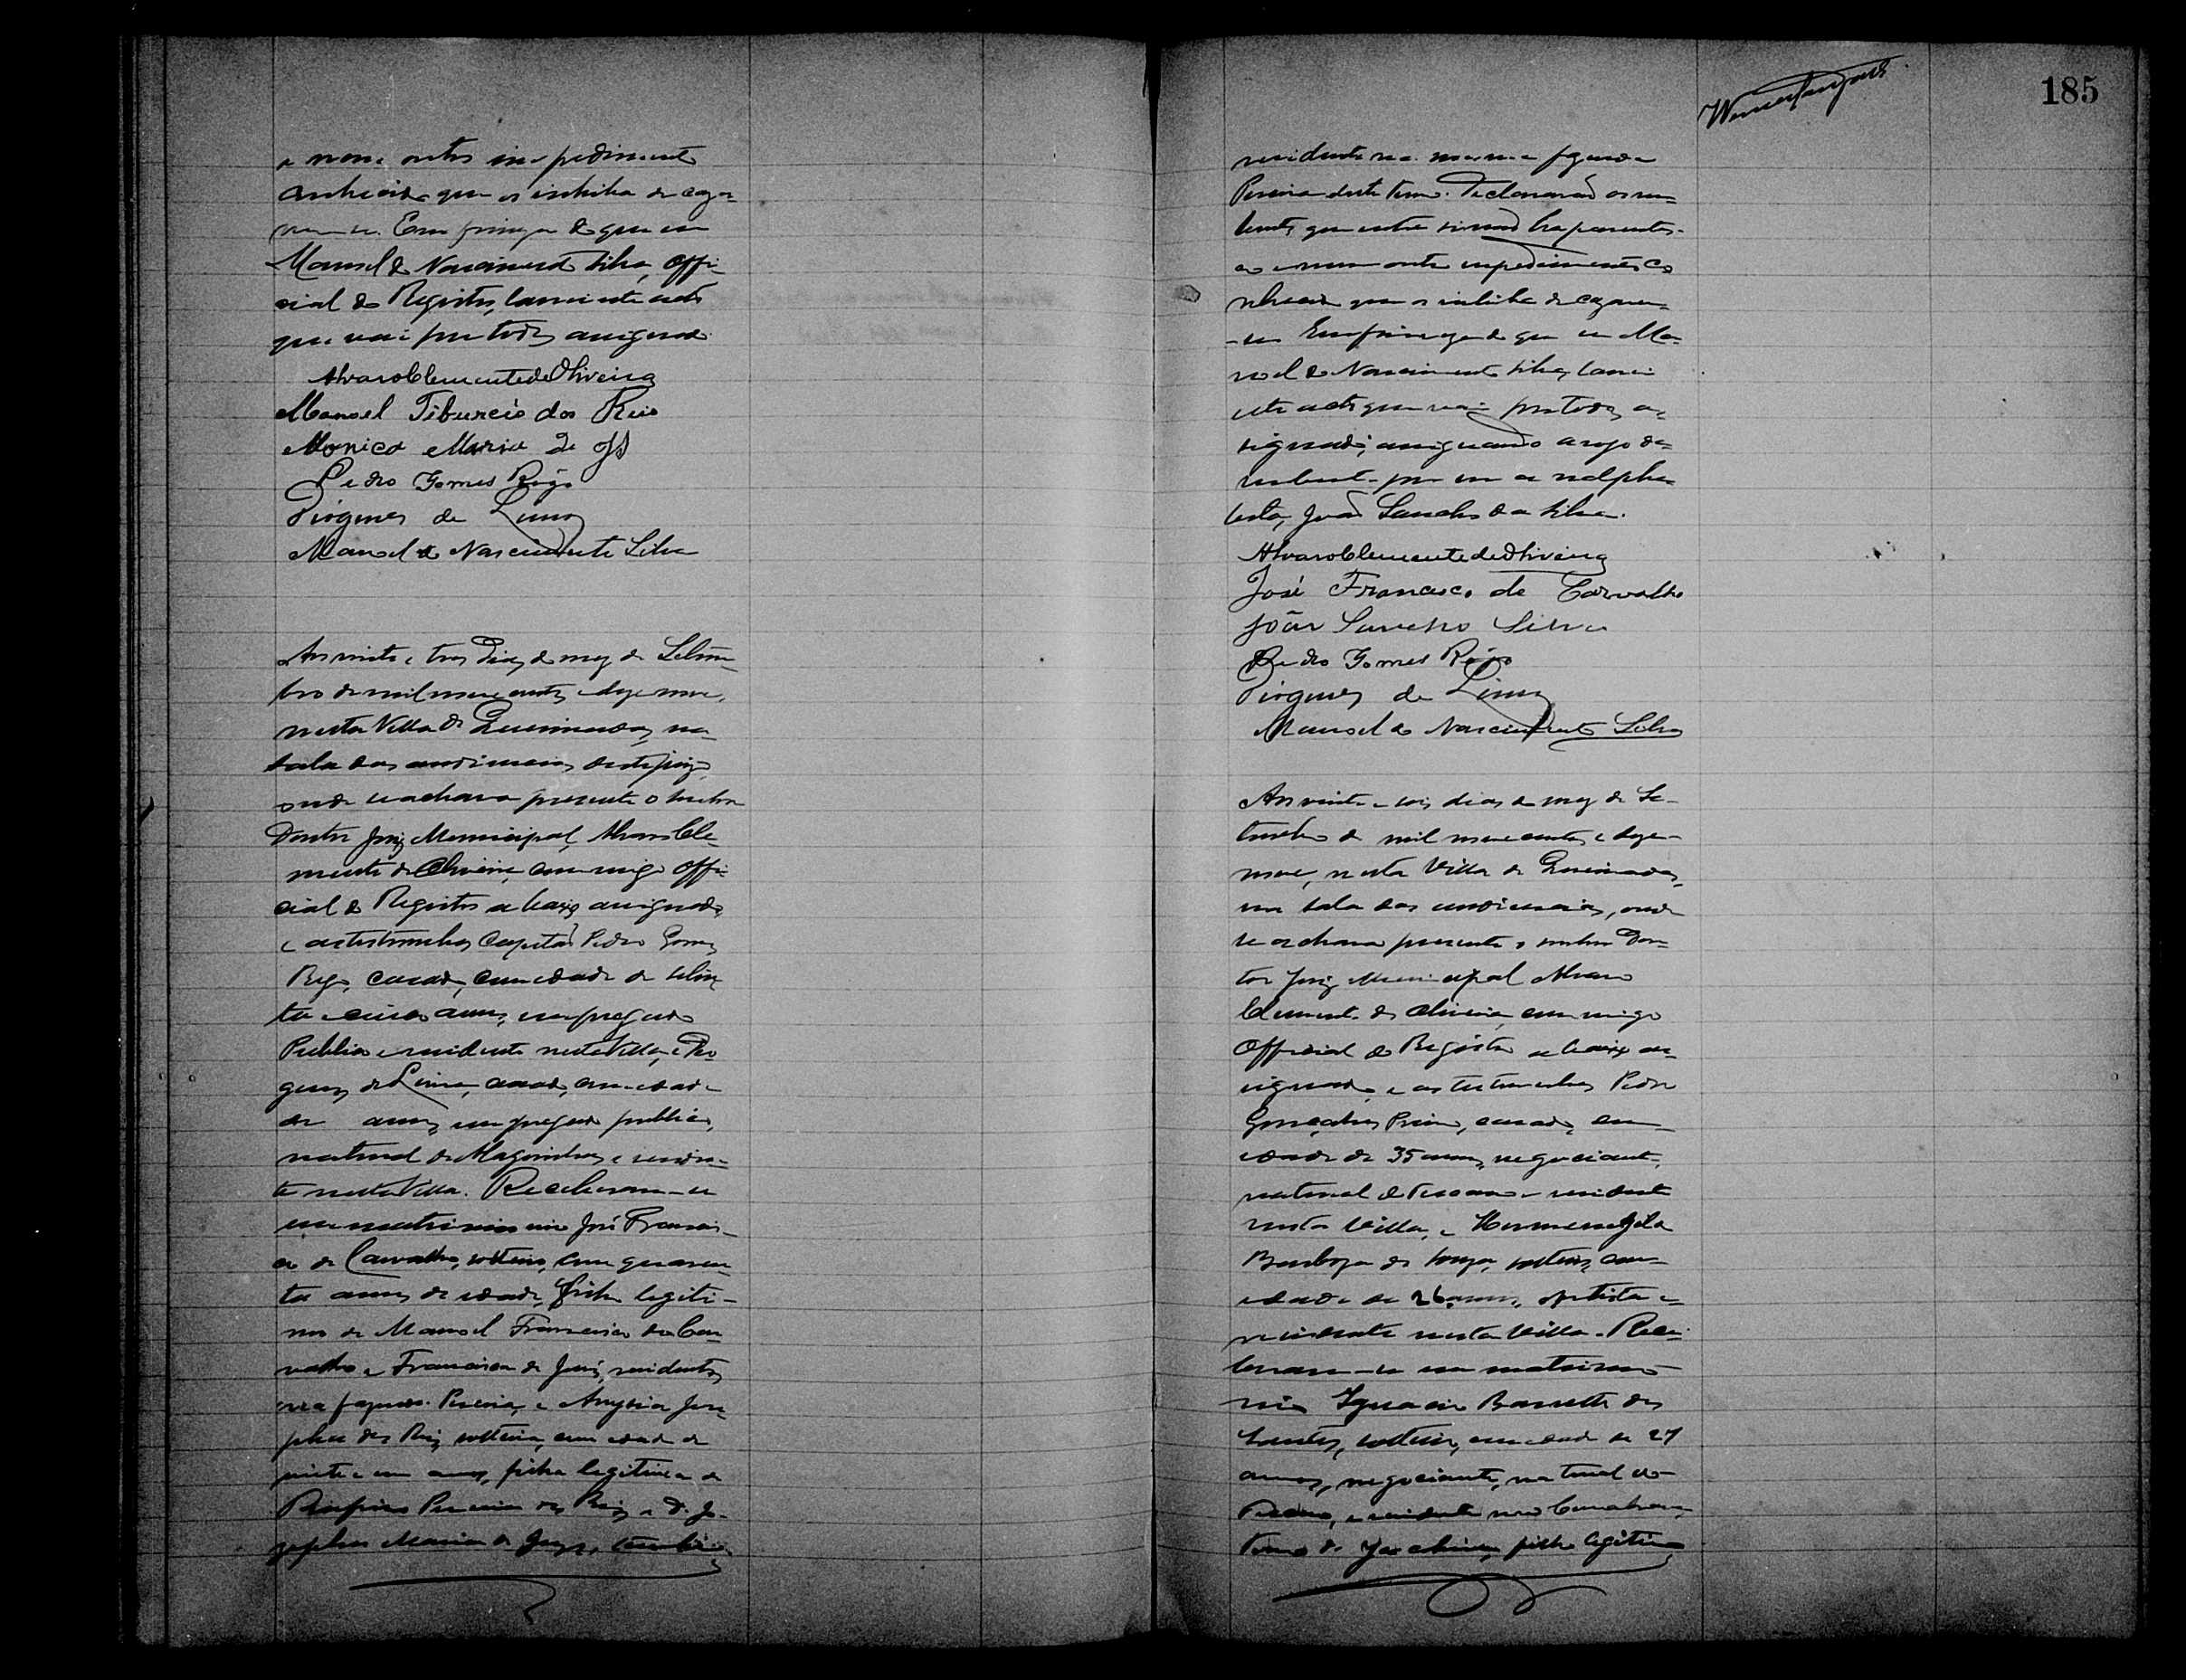 e nem outro impedimento
conhecido que os inhiba de caza-
rem-se. Em firmeza do que eu
Manoel do Nascimento Silva, Offi-
cial do Registro, lancei este acto
que vai por todos assignado.
Alvaro Clemente de Oliveira
Manoel Tiburcio dos Reis
Monica Maria de Js
Pedro Gomes Rêgo
Diogenes de Lima
Manoel do Nascimento Silva
Aos vinte e tres dias do mez de Setem-
bro de mil nove centos e dezenove,
nesta Villa de Queimadas, na
sala das audiencias deste juizo,
onde se achava presente o senhor
Doutor Juiz Municipal, Alvaro Cle-
mente de Oliveira, commigo Offi-
cial do Registro abaixo assignado,
e as testemunhas Capitão Pedro Gomes
Rego, casado, com edade de seten-
ta e cinco annos, empregado
Publico e residente nesta Villa, e Dio
genes de Lima, casado, com edade
de annos, empregado publico,
natural de Alagoinhas e residen-
te nesta Villa. Receberam-se
em matrimonio José Francis-
co de Carvalho, solteiro, com quaren-
ta annos de edade, filho legiti-
mo de Manoel Francisco de Car-
valho e Francisca de Jesus, residentes
na fazenda Pereira, e Anysia Jose-
pha dos Reis, solteira, com edade de
vinte e um annos, filha legitima de
Pereira dos Reis e D. Jo-
sepha Maria de Jesus, tambem
185
residente na mesma fazenda
Pereira deste termo. Declararão os nu-
bentes que entre si não ha parentes-
co e nem outro impedimento co-
nhecido que os inhiba de cazarem-
-se. Em firmeza do que eu Ma-
noel do Nascimento Silva, lancei
este acto que vai por todos as-
signado, assignando a rogo da
nubente por ser analpha-
beta, João Sancho da Silva.
Alvaro Clemente de Oliveira
José Francisco de Carvalho
João Sancho Silva
Pedro Gomes Rêgo
Diogenes de Lima
Manoel do Nascimento Silva
Aos vinte e seis dias do mez de Se-
tembro de mil nove centos e deze-
nove, nesta Villa de Queimadas,
na sala das audiencias, onde
se achava presente o senhor Dou-
tor Juiz Municipal Alvaro
Clemente de Oliveira, commigo
Official do Registro abaixo as-
signado, e as testemunhas Pedro
Gonçalves, casado, com
edade de 35 annos, negociante,
natural de e residente
nesta Villa, e Hermenegildo
Barboza de Souza, solteiro, com
edade de 26 annos, artista e
residente nesta Villa. Rece-
beram-se em matrimo-
nio Ignacio Barretto dos
Santos, solteiro, com edade de 27
annos, negociante, natural do
e residente no
Termo de filho legitimo